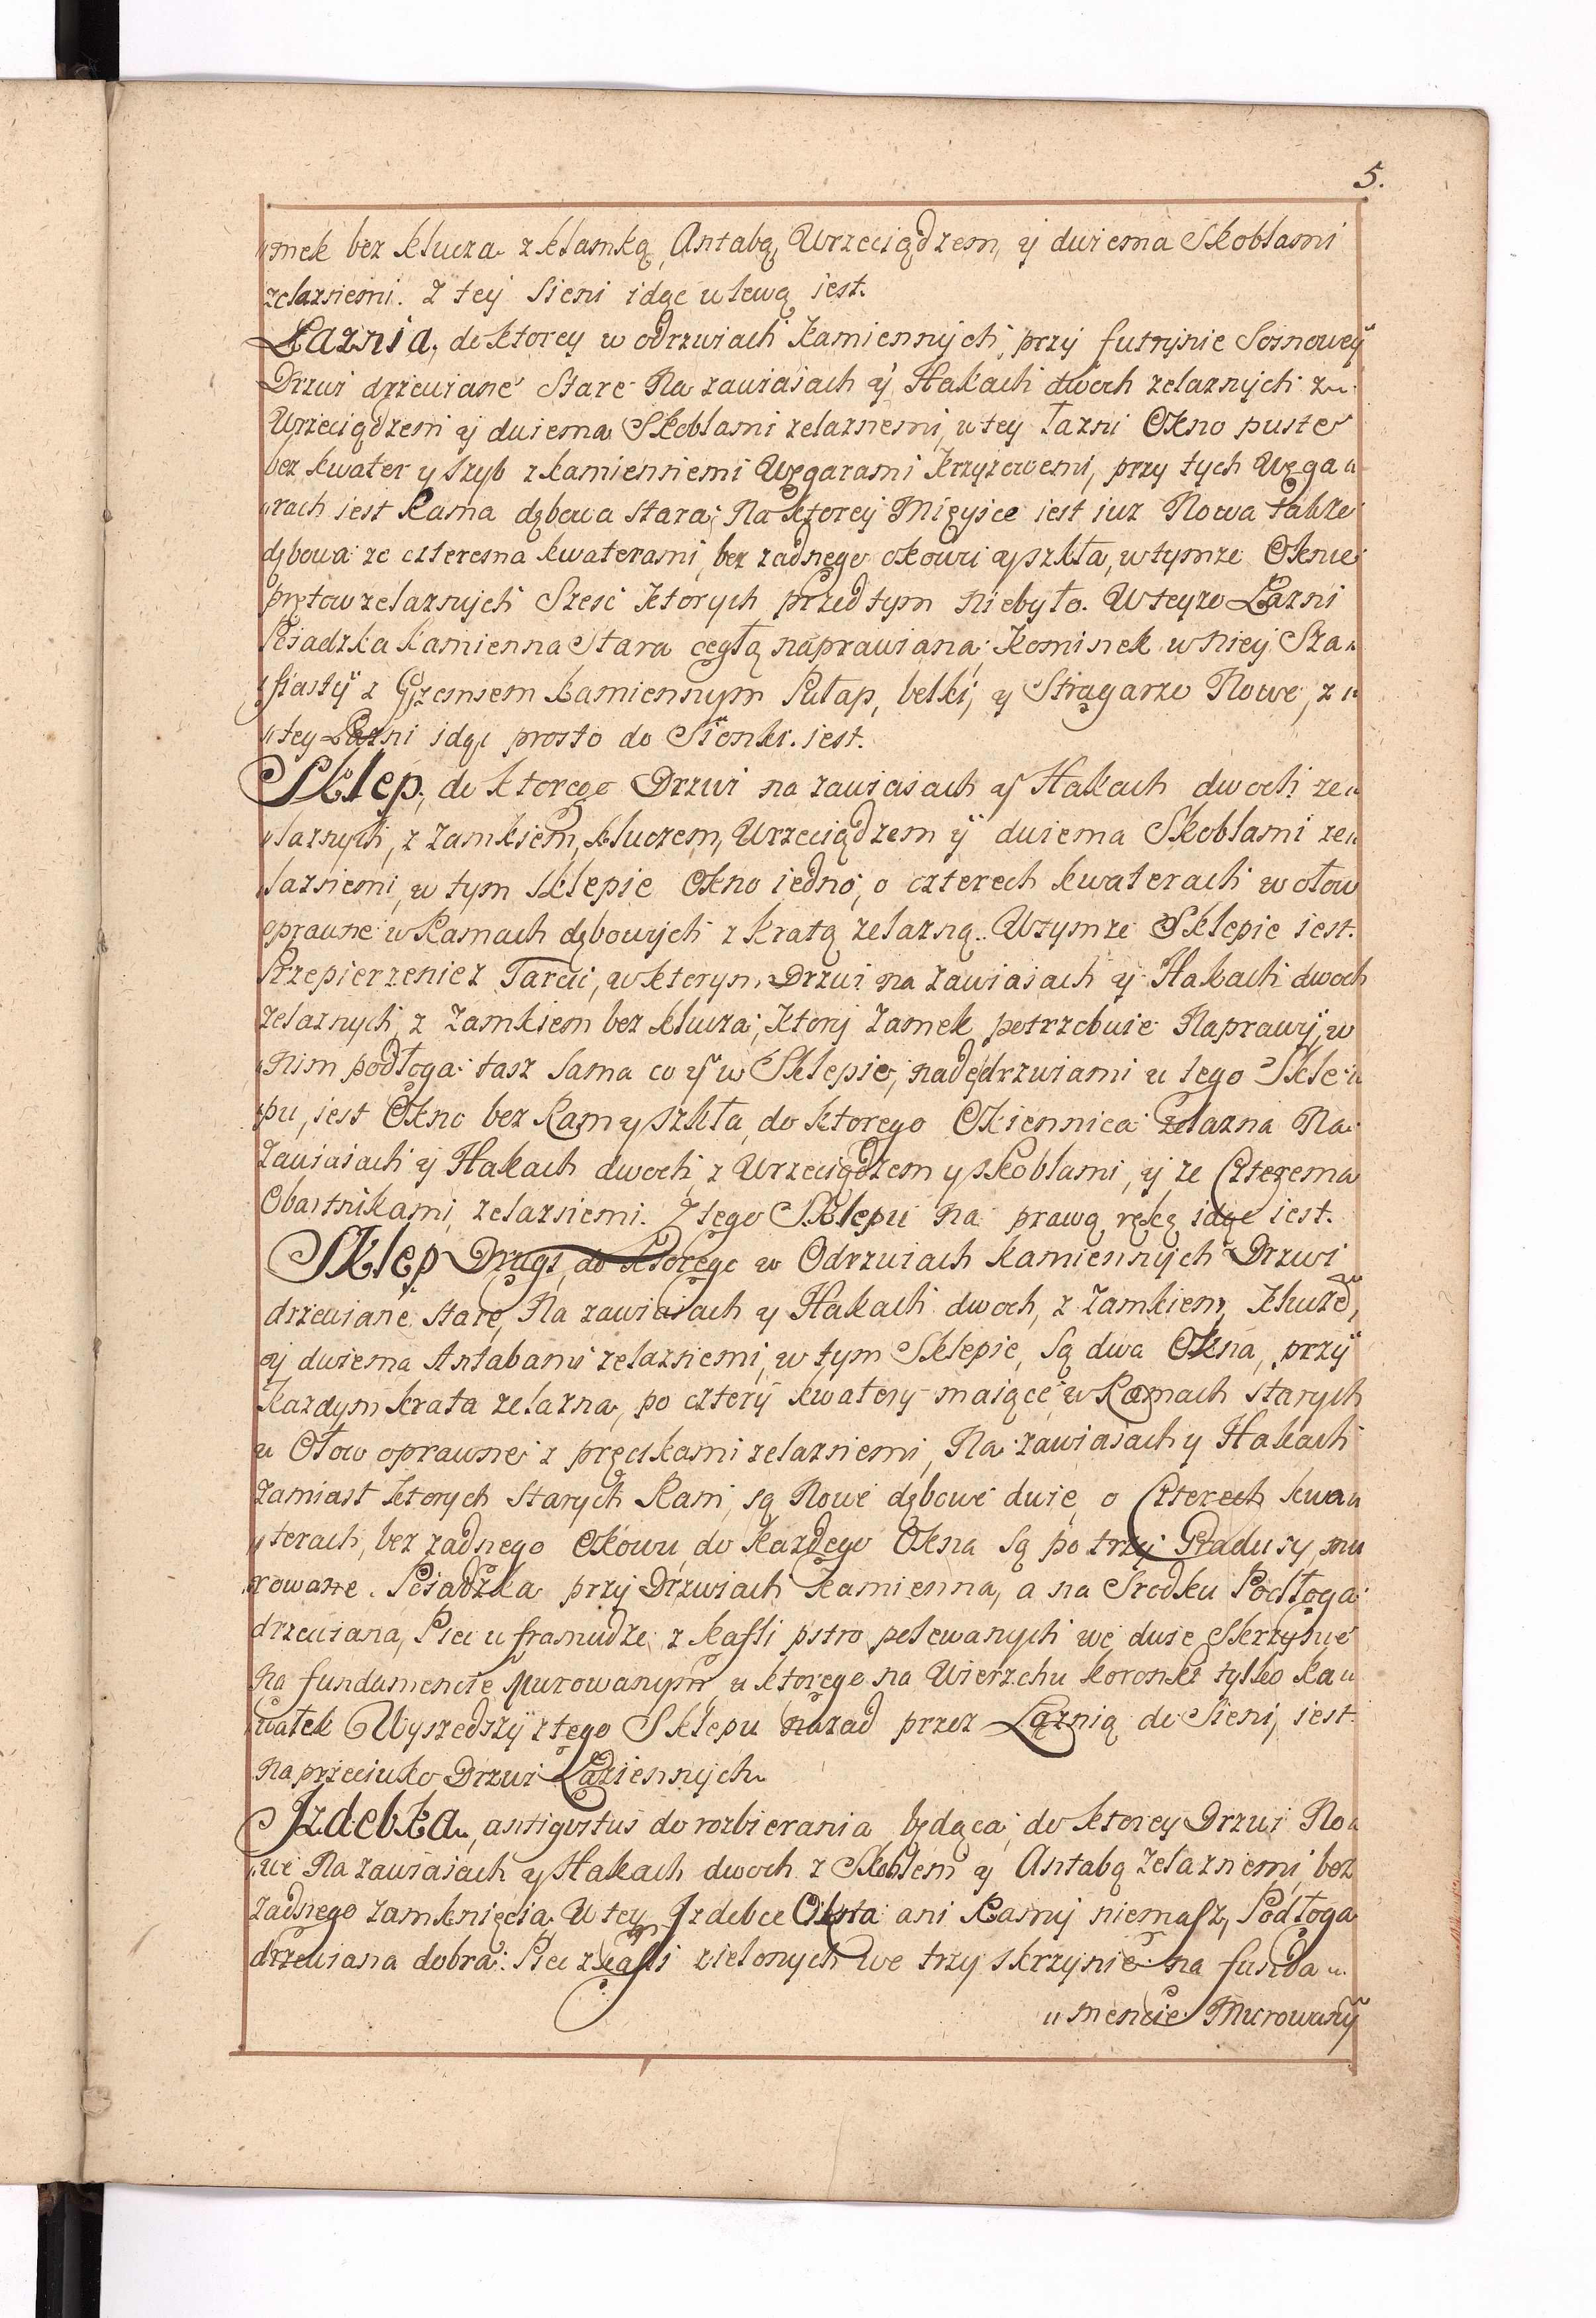 5.
„mek bez klucza z klamką, Antabą, Wrzeciądzem, ÿ dwiema Skoblami
zelaznemi. Z tey Sieni idąc w lewą jest.
Łaznia, do ktorey w odrzwiach kamiennych, przy futrynie Sosnowey
Drzwi drzewiane Stare Na zawiasach ÿ Hakach dwoch zelaznych z„
Wrzeciądzem ÿ dwiema Skoblami zelaznemi, w tey łazni Okno puste
bez kwater y szyb z kamiennemi Węgarami krzyzowemi, przy tych Węga„
„rach iest Rama dębowa stara; Na ktorey Mieysce iest iuz Nowa takze
dębowa ze czterema kwaterami, bez zadnego okowu ÿ szkła, w tymze Oknie
prętow zelaznych Szesc ktorych przed tym niebyło. W teyze Łazni
Posadzka kamienna Stara cegłą naprawiana; Kominek w niey Sza„
fiasty z Gzemsem kamiennym Pułap, belki, ÿ Strągarze Nowe, z„
„tey Łazni idąc prosto do Sionki. iest.
Sklep, do ktorego Drzwi na zawiasach ÿ Hakach dwoch ze„
„laznych, z Zamkiem, kluczem, Wrzeciądzem ÿ dwiema Skoblami ze„
„laznemi, w tym Sklepie Okno iedno, o czterech kwaterach w ołow
oprawne w Ramach dębowych z kratą zelazną. W tymze Sklepie iest.
Przepierzenie z Tarcic, w ktorym Drzwi na zawiasach ÿ Hakach dwoch
zelaznych, z Zamkiem bez klucza; ktory Zamek potrzebuie Naprawy, w
„nim podłoga taz sama co ÿ w Sklepie, nade drzwiami u tego Skle„
„pu, iest Okno bez Ram y szkła, do ktorego Okiennica zelazna Na
Zawiasach ÿ Hakach dwoch, z Wrzeciądzem y skoblami, ÿ ze Czterema
Obartnikami, zelaznemi. Z tego Sklepu Na prawą rękę idąc iest.
Sklep Drugi, do ktorego w Odrzwiach kamiennych Drzwi
drzewiane stare, Na zawiasach ÿ Hakach dwoch, z Zamkiem, kluczē,
ÿ dwiema Antabami zelaznemi, w tym Sklepie, Są dwa Okna, przy
Kazdym krata zelazna, po cztery kwatery maiące, w Ramach starych
w Ołow oprawne z pręcikami zelaznemi, Na zawiasach y Hakach
Zamiast ktorych Starych Ram, są Nowe dębowe dwie, o Czterech kwa„
„terach, bez zadnego Okowu, do kazdego Okna Są po trzy Gradusy mu
rowane. Posadzka przy Drzwiach kamienna, a na Srodku Podłoga
drzewiana, Piec w framudze z kafli pstro polewanych we dwie Skrzynie
na fundamencie Murowanym, u ktorego na Wierzchu koronki tylko ka„
wałek Wyszedszy z tego Sklepu nazad przez Łaznią do Sieni, iest
Naprzeciwko Drzwi Łaziennych.
Izdebka, antiquitus do rozbierania będąca, do ktorey Drzwi No„
„we Na zawiasach ÿ Hakach dwoch z Skoblem ÿ Antabą zelaznemi, bez
zadnego zamknięcia. W tey Izdebce Okna ani Ramy niemasz, Podłoga
drzewiana dobra. Piec z kafli zielonych we trzy skrzynie na funda„
„mencie Murowanȳ